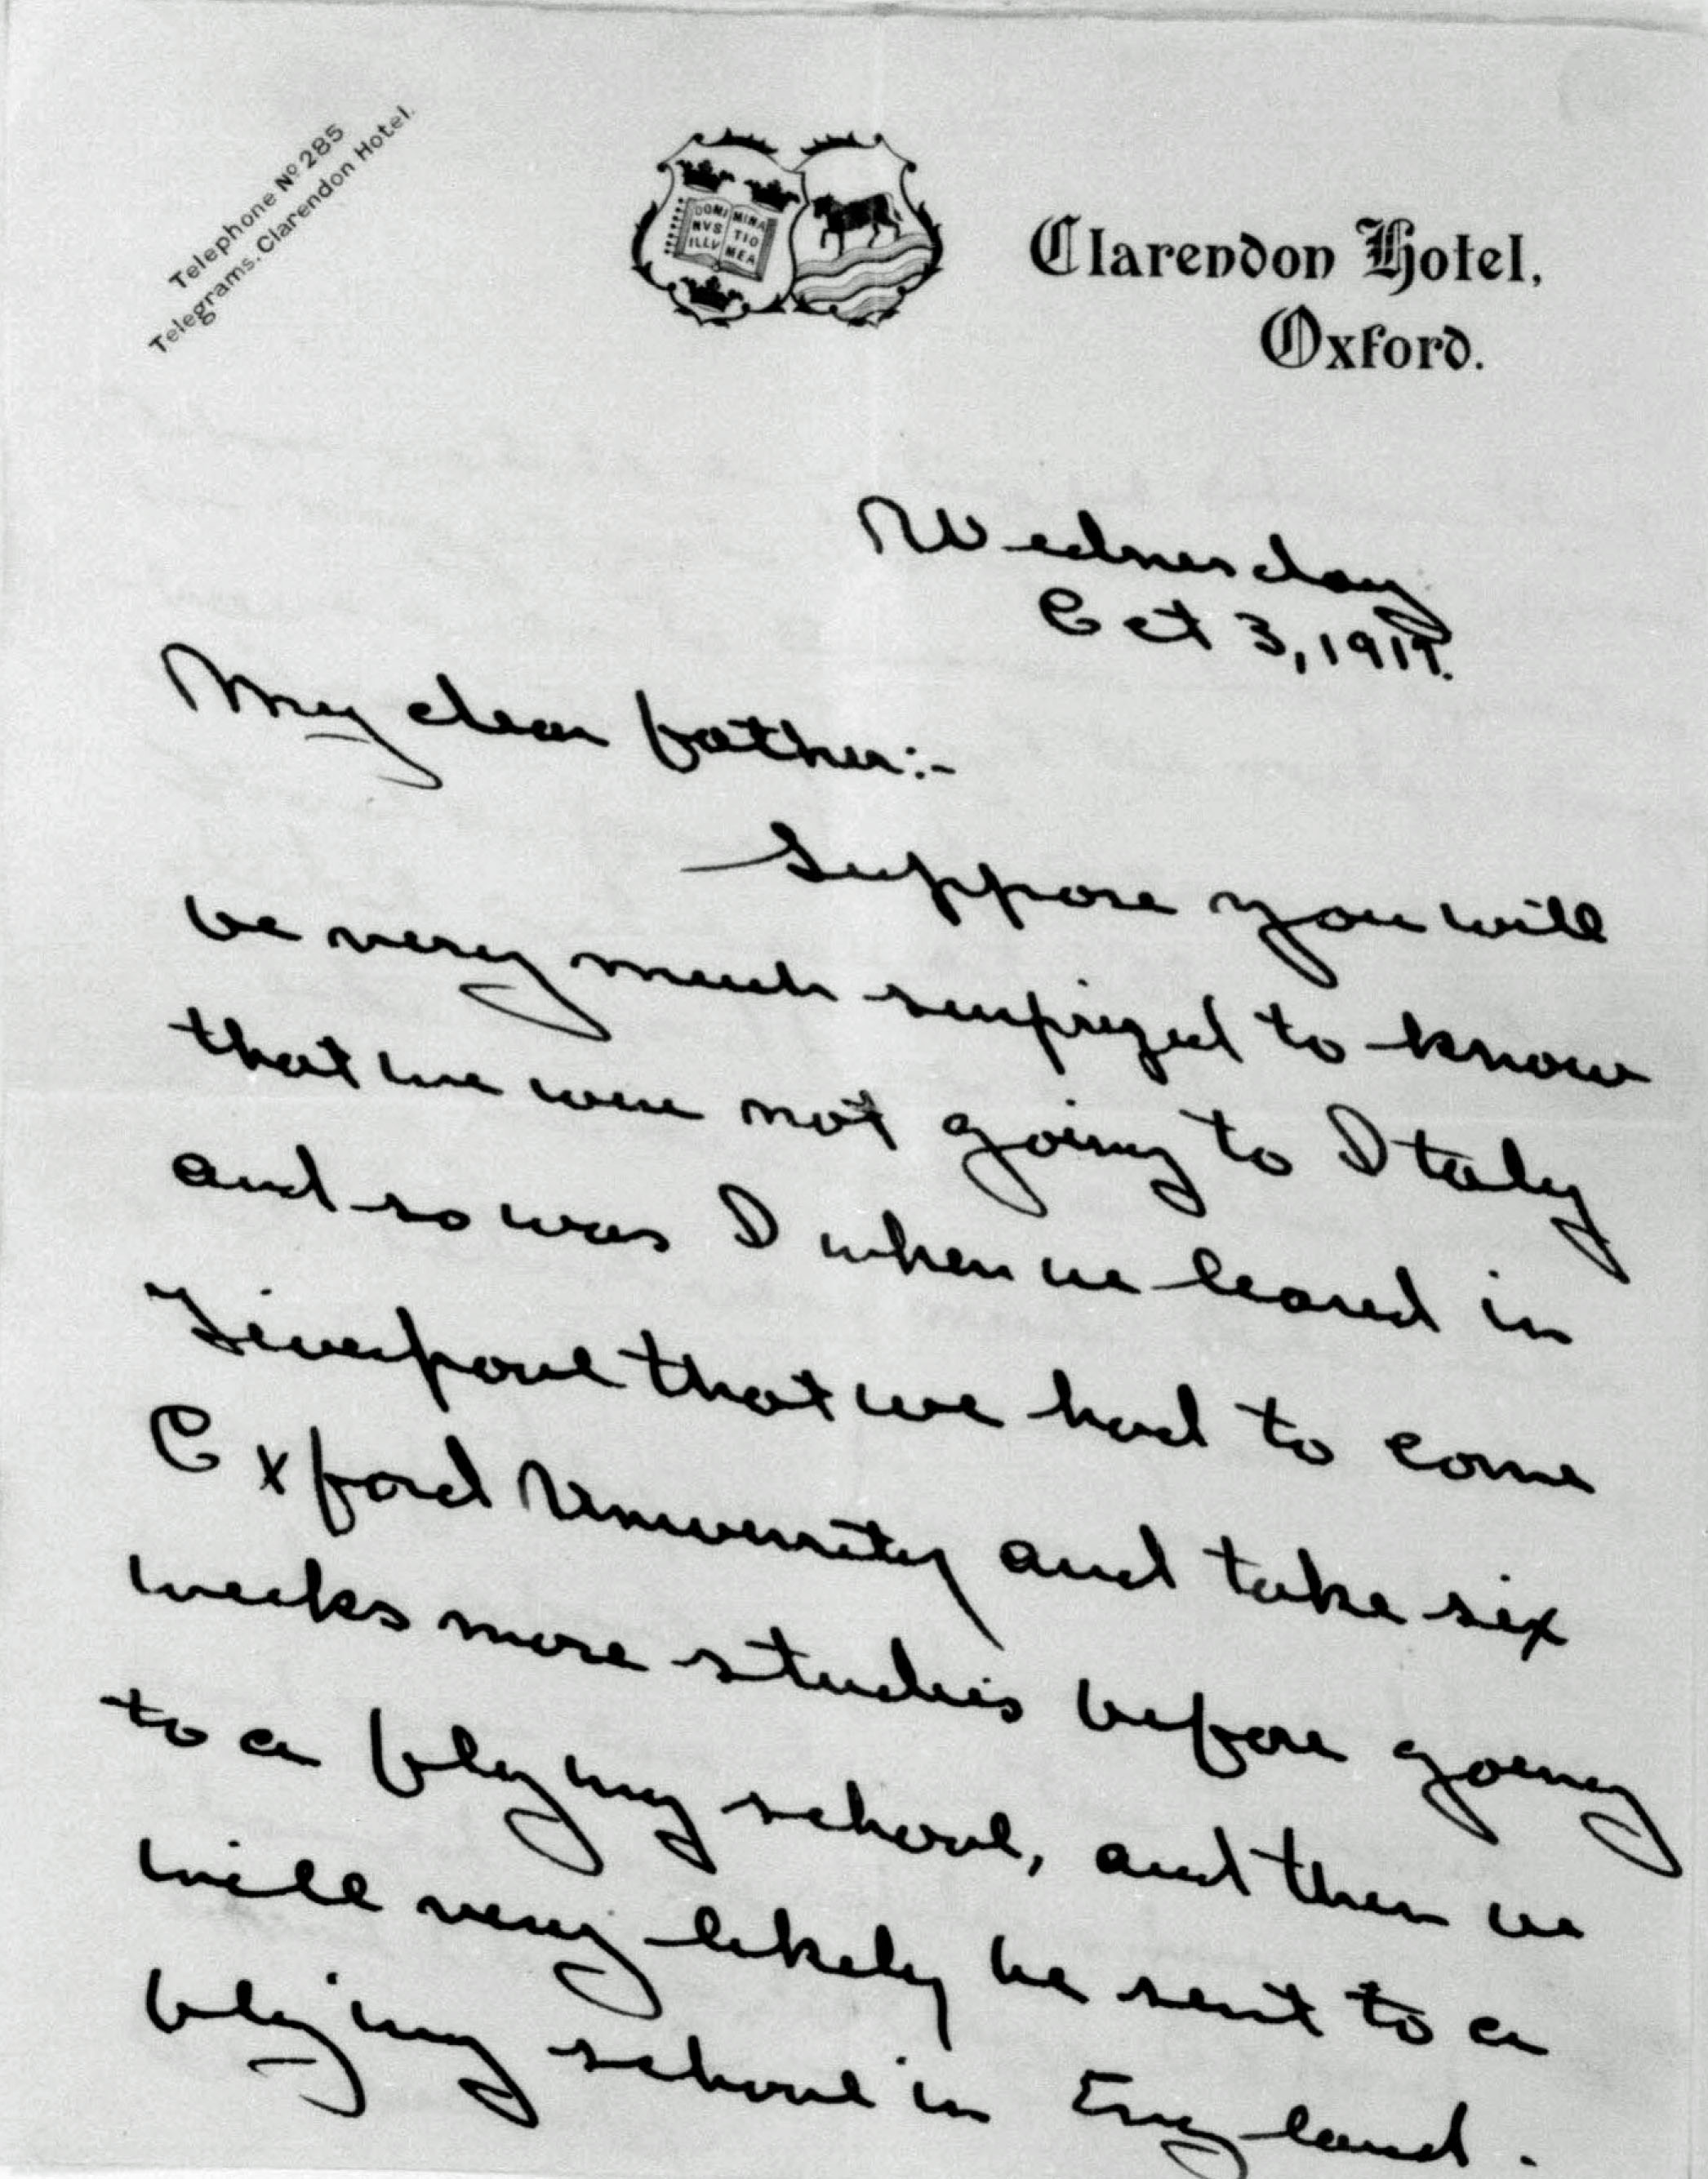 Telephone Nº 285
Telegrams. Clarendon Hotel.
DOMI MINA
NVS TIO
ILLV MEA
Clarendon Hotel,
Oxford.
Wednesday
Oct 3, 1917.
My dear father:-
Suppose you will
be very much surprized to know
that we were not going to Italy
and so was I when we leared in
Liverpool that we had to come
Oxford University and take six
weeks more studies before going
to a flying school, and then we
will very likely be sent to a
flying school in England.